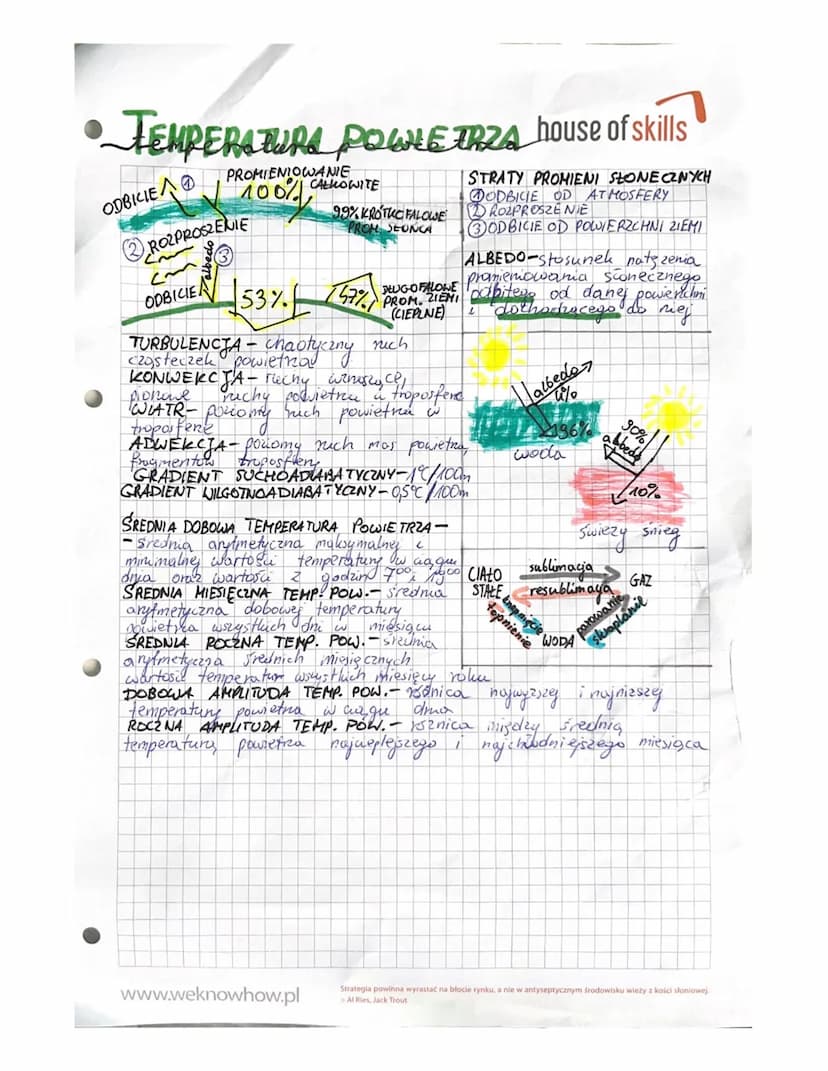 TEMPERATURA POWIETRZA
temperatura powietrza
house of skills
PROMIENIOWANIE
100% CAŁKOWITE
ODBICIE
1
99% KRÓTKOFALOWE
PROM. SŁOŃCA
2 ROZPROSZENIE
albedo
3
ODBICIE
53%
47%
DŁUGOFALOWE
PROM. ZIEMI
(CIEPLNE)
TURBULENCJA – chaotyczny ruch
cząsteczek powietrza
KONWEKCJA – ruchy wznoszące,
pionowe ruchy powietrza w troposferze
WIATR – poziomy ruch powietrza w
troposferze
ADWEKCJA – poziomy ruch mas powietrza,
fragmentów troposfery
GRADIENT SUCHOADIABATYCZNY – 1°C/100m
GRADIENT WILGOTNOADIABATYCZNY – 0,5°C/100m
ŚREDNIA DOBOWA TEMPERATURA POWIETRZA –
– średnia arytmetyczna maksymalnej i
minimalnej wartości temperatury w ciągu
dnia oraz wartości z godzin 7⁰⁰ i 19⁰⁰
ŚREDNIA MIESIĘCZNA TEMP. POW. – średnia
arytmetyczna dobowej temperatury
powietrza wszystkich dni w miesiącu
ŚREDNIA ROCZNA TEMP. POW. – średnia
arytmetyczna średnich miesięcznych
wartości temperatur wszystkich miesięcy roku
DOBOWA AMPLITUDA TEMP. POW. – różnica najwyższej i najniższej
temperatury powietrza w ciągu dnia
ROCZNA AMPLITUDA TEMP. POW. – różnica między średnią
temperaturą powietrza najcieplejszego i najchłodniejszego miesiąca
STRATY PROMIENI SŁONECZNYCH
1 ODBICIE OD ATMOSFERY
2 ROZPROSZENIE
3 ODBICIE OD POWIERZCHNI ZIEMI
ALBEDO – stosunek natężenia
promieniowania słonecznego
odbitego od danej powierzchni
i dochodzącego do niej
albedo
4%
96%
woda
90%
albedo
10%
świeży śnieg
CIAŁO
STAŁE
sublimacja
resublimacja
GAZ
topnienie
krzepnięcie
WODA
parowanie
skraplanie
www.weknowhow.pl
Strategia powinna wyrastać na błocie rynku, a nie w antyseptycznym środowisku wieży z kości słoniowej.
> Al Ries, Jack Trout